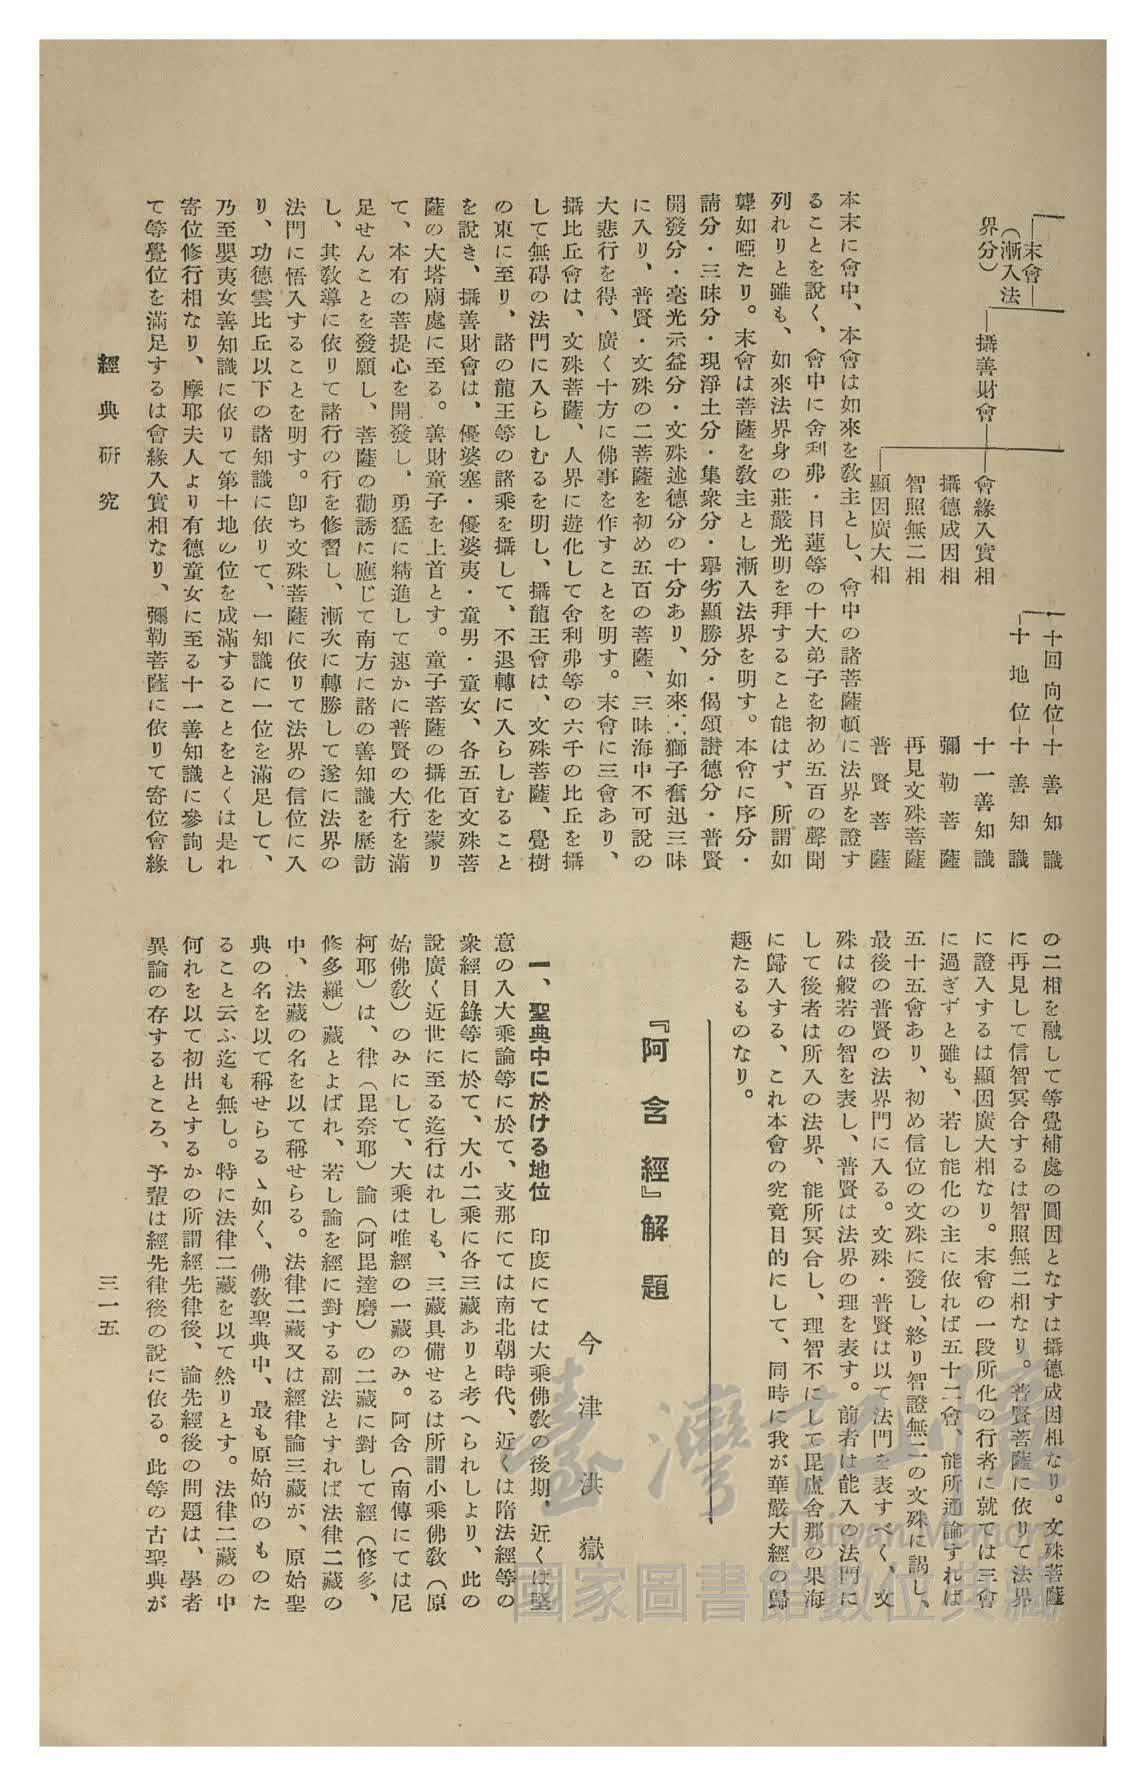 末會
（漸入法
界分）
攝善財會
會緣入實相
攝德成因相
智照無二相
顯因廣大相
十回向位―十善知識
十地位―十善知識
十一善知識
彌勒菩薩
再見文殊菩薩
普賢菩薩
本末に會中、本會は如來を敎主とし、會中の諸菩薩頓に法界を證す
ることを說く、會中に舍利弗・目蓮等の十大弟子を初め五百の聲聞
列れりと雖も、如來法界身の莊嚴光明を拜すること能はず、所謂如
聾如啞たり。末會は菩薩を敎主とし漸入法界を明す。本會に序分・
請分・三昧分・現淨土分・集衆分・擧劣顯勝分・偈頌讃德分・普賢
開發分・毫光示益分・文殊述德分の十分あり、如來・獅子奮迅三昧
に入り、普賢・文殊の二菩薩を初め五百の菩薩、三昧海中不可說の
大悲行を得、廣く十方に佛事を作すことを明す。末會に三會あり、
攝比丘會は、文殊菩薩、人界に遊化して舍利弗等の六千の比丘を攝
して無碍の法門に入らしむるを明し、攝龍王會は、文殊菩薩、覺樹
の東に至り、諸の龍王等の諸乘を攝して、不退轉に入らしむること
を說き、攝善財會は、優婆塞・優婆夷・童男・童女、各五百文殊菩
薩の大塔廟處に至る。善財童子を上首とす。童子菩薩の攝化を蒙り
て、本有の菩提心を開發し、勇猛に精進して速かに普賢の大行を滿
足せんことを發願し、菩薩の勸誘に應じて南方に諸の善知識を歷訪
し、其敎導に依りて諸行の行を修習し、漸次に轉勝して遂に法界の
法門に悟入することを明す。卽ち文殊菩薩に依りて法界の信位に入
り、功德雲比丘以下の諸知識に依りて、一知識に一位を滿足して、
乃至嬰夷女善知識に依りて第十地の位を成滿することをとくは是れ
寄位修行相なり、摩耶夫人より有德童女に至る十一善知識に參詢し
て等覺位を滿足するは會緣入實相なり、彌勒菩薩に依りて寄位會緣
の二相を融して等覺補處の圓因となすは攝德成因相なり。文殊菩薩
に再見して信智冥合するは智照無二相なり。普賢菩薩に依りて法界
に證入するは顯因廣大相なり。末會の一段所化の行者に就ては三會
に過ぎずと雖も、若し能化の主に依れば五十二會、能所通論すれば
五十五會あり、初め信位の文殊に發し、終り智證無二の文殊に謁し、
最後の普賢の法界門に入る。文殊・普賢は以て法門を表すべく、文
殊は般若の智を表し、普賢は法界の理を表す。前者は能入の法門に
して後者は所入の法界、能所冥合し、理智不にして毘盧舍那の果海
に歸入する、これ本會の究竟目的にして、同時に我が華嚴大經の歸
趣たるものなり。
『阿含經』解題
今津洪嶽
一、聖典中に於ける地位　印度にては大乘佛敎の後期、近くは堅
意の入大乘論等に於て、支那にては南北朝時代、近くは隋法經等の
衆經目錄等に於て、大小二乘に各三藏ありと考へられしより、此の
說廣く近世に至る迄行はれしも、三藏具備せるは所謂小乘佛敎（原
始佛敎）のみにして、大乘は唯經の一藏のみ。阿含（南傳にては尼
柯耶）は、律（毘奈耶）論（阿毘達磨）の二藏に對して經（修多、
修多羅）藏とよばれ、若し論を經に對する副法とすれば法律二藏の
中、法藏の名を以て稱せらる。法律二藏又は經律論三藏が、原始聖
典の名を以て稱せらるゝ如く、佛敎聖典中、最も原始的のものた
ること云ふ迄も無し。特に法律二藏を以て然りとす。法律二藏の中
何れを以て初出とするかの所謂經先律後、論先經後の問題は、學者
異論の存するところ、予輩は經先律後の說に依る。此等の古聖典が
經典研究
三一五
臺灣記憶
Taiwan Memory
國家圖書館數位典藏